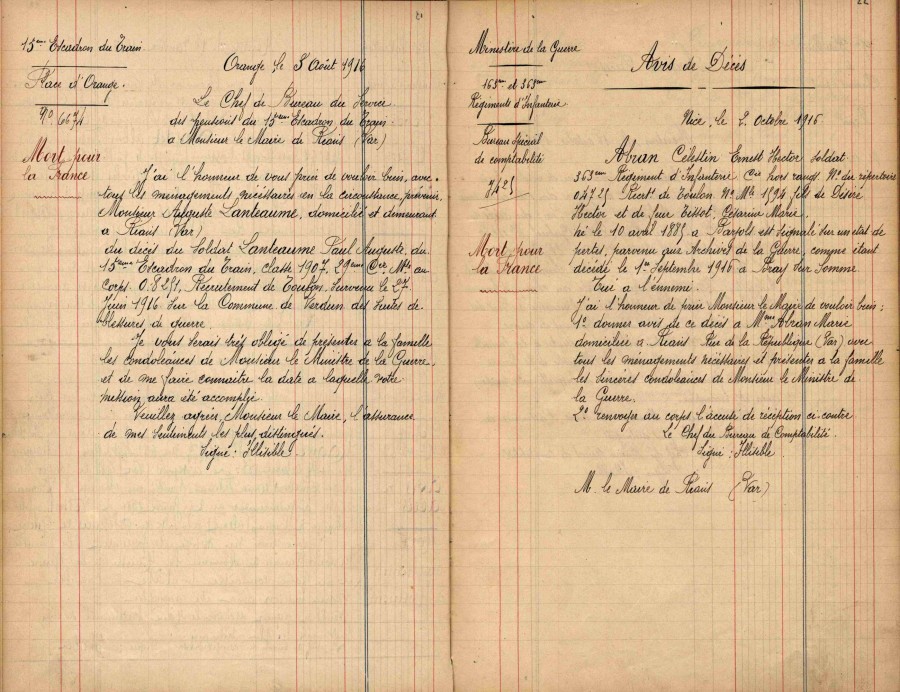 21
15eme Escadron du Train
Place d'Orange.
No 6674
Mort pour
la France
Orange, le 8 Août 1916
Le Chef de Bureau du Service
des pensions du 15eme Escadron du Train
a Monsieur le Maire de Rians (Var)
J'ai l'honneur de vous prier de vouloir bien, avec
tous les ménagements nécessaires en la circonstance, prévenir
Monsieur Auguste Lanteaume, domicilié et demeurant
a Rians (Var)
du décès du Soldat Lanteaume Paul Auguste, du
15eme Escadron du Train, classe 1907. 29eme Cie, Mle au
corps 0.8251, Recrutement de Toulon. Survenu le 27
Juin 1916 sur la Commune de Verdun des suites de
blessures de guerre.
Je vous serais très obligé de présenter a la famille
les condoléances de Monsieur le Ministre de la Guerre,
et de me faire connaitre la date a laquelle votre
mission aura été accomplie.
Veuillez agréer, Monsieur le Maire, l'assurance
de mes sentiments les plus distingués.
Signé: Illisible.
22
Ministère de la Guerre
163eme et 363eme
Régiments d'Infanterie
Bureau Spécial
de comptabilité
Mort pour
la France
Avis de Décès
Nice, le 2 Octobre 1916
Abran Célestin Ernest Hector Soldat
363eme Régiment d'Infanterie Cie hors rang. No du répertoire
04725 Rect. de Toulon. No Mle 1594 fils de Désiré
Hector et de feue Eissot, Césarine Marie.
né le 10 avril 1885 a Barjols est signalé sur un état de
pertes, parvenu aux Archives de la Guerre, comme étant
décédé le 1er Septembre 1916 a Bray sur Somme
Tué a l'ennemi.
J'ai l'honneur de prier Monsieur le Maire de vouloir bien:
1o donner avis de ce décès a Mme Abran Marie
domiciliée a Rians Rue de la République (Var) avec
tous les ménagements nécessaires et présenter a la famille
les sincères condoléances de Monsieur le Ministre de
la Guerre.
2o renvoyer au corps l'accusé de réception ci-contre
Le Chef du Bureau de Comptabilité.
Signé: Illisible.
M. le Maire de Rians (Var)